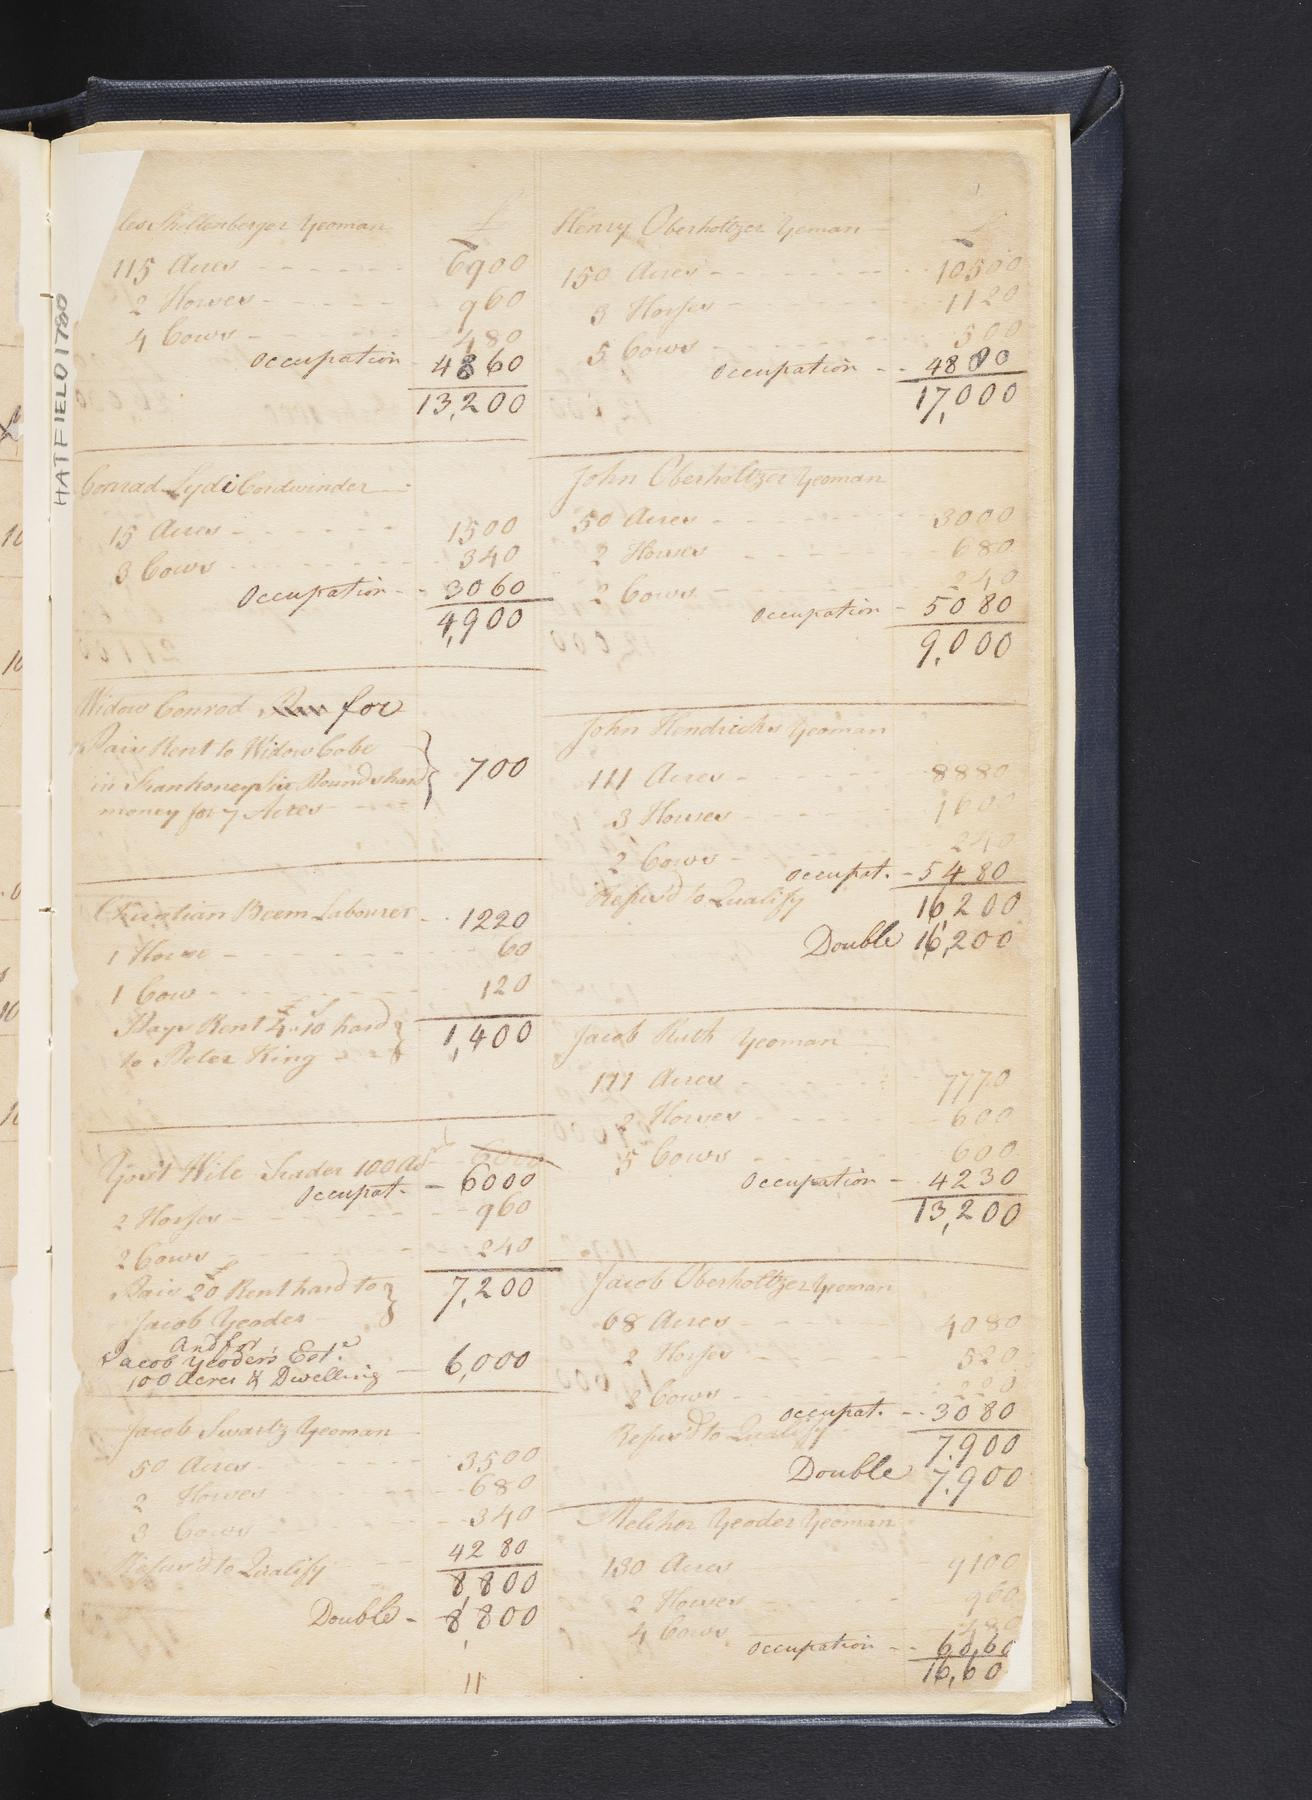 HATFIELD 1780
£
Shellenberger Yeoman
115 Acres 6900
2 Horses 960
4 Cows 480
Occupation 4860
13,200
Conrad Lydi Cordwinder
15 Acres 1500
3 Cows 340
Occupation 3060
4,900
Widow Conrad for
Pais Rent to Widow Cobe
in Pounds hard 700
money for 7 Acres
Christian Beem Labourer 1220
1 Horse 60
1 Cow 120
Pays Rent £4.. 10 hard
to Peter King 1,400
Yost Wile Trader 100 6000
Occupat. 6000
2 Horses 960
2 Cows 240
Pais 20 £ Rent hard to 7,200
Jacob Yeoder
And for
Jacob Yeoder's Est.
100 Acres & Dwelling 6,000
Jacob Swartz Yeoman
50 Acres 3500
2 Horses 680
3 Cows 340
4280
Refus'd to Qualify
8,800
Double 8,800
11
Henry Oberholtzer Yeman
150 Acres 10500
3 Horses 1120
5 Cows 500
Occupation 4880
17,000
John Oberholtzer Yeoman
50 Acres 3000
2 Horses 680
2 Cows 240
Occupation 5080
9,000
John Hendricks Yeoman
111 Acres 8880
3 Horses 1600
2 Cows 240
Occupat. 5480
Refus'd to Qualify 16,200
Double 16,200
Jacob Ruth Yeoman
111 Acres 7770
2 Horses 600
5 Cows 600
Occupation 4230
13,200
Jacob Oberholtzer Yeoman
68 Acres 4080
2 Horses 520
Cows
Occupat. 3080
Refus'd to Qualify
7,900
Double 7,900
Melchor Yeoder Yeoman
130 Acres 9100
2 Horses 960
4 Cows 480
Occupation 6060
16,60